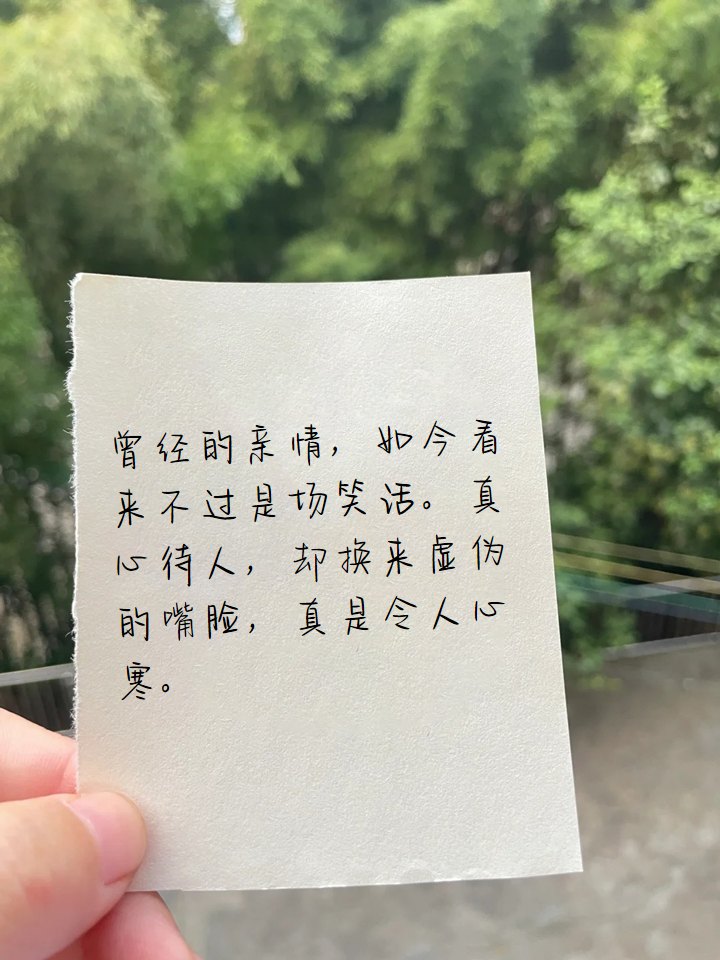 曾经的亲情，如今看
来不过是场笑话。真
心待人，却换来虚伪
的嘴脸，真是令人心
寒。